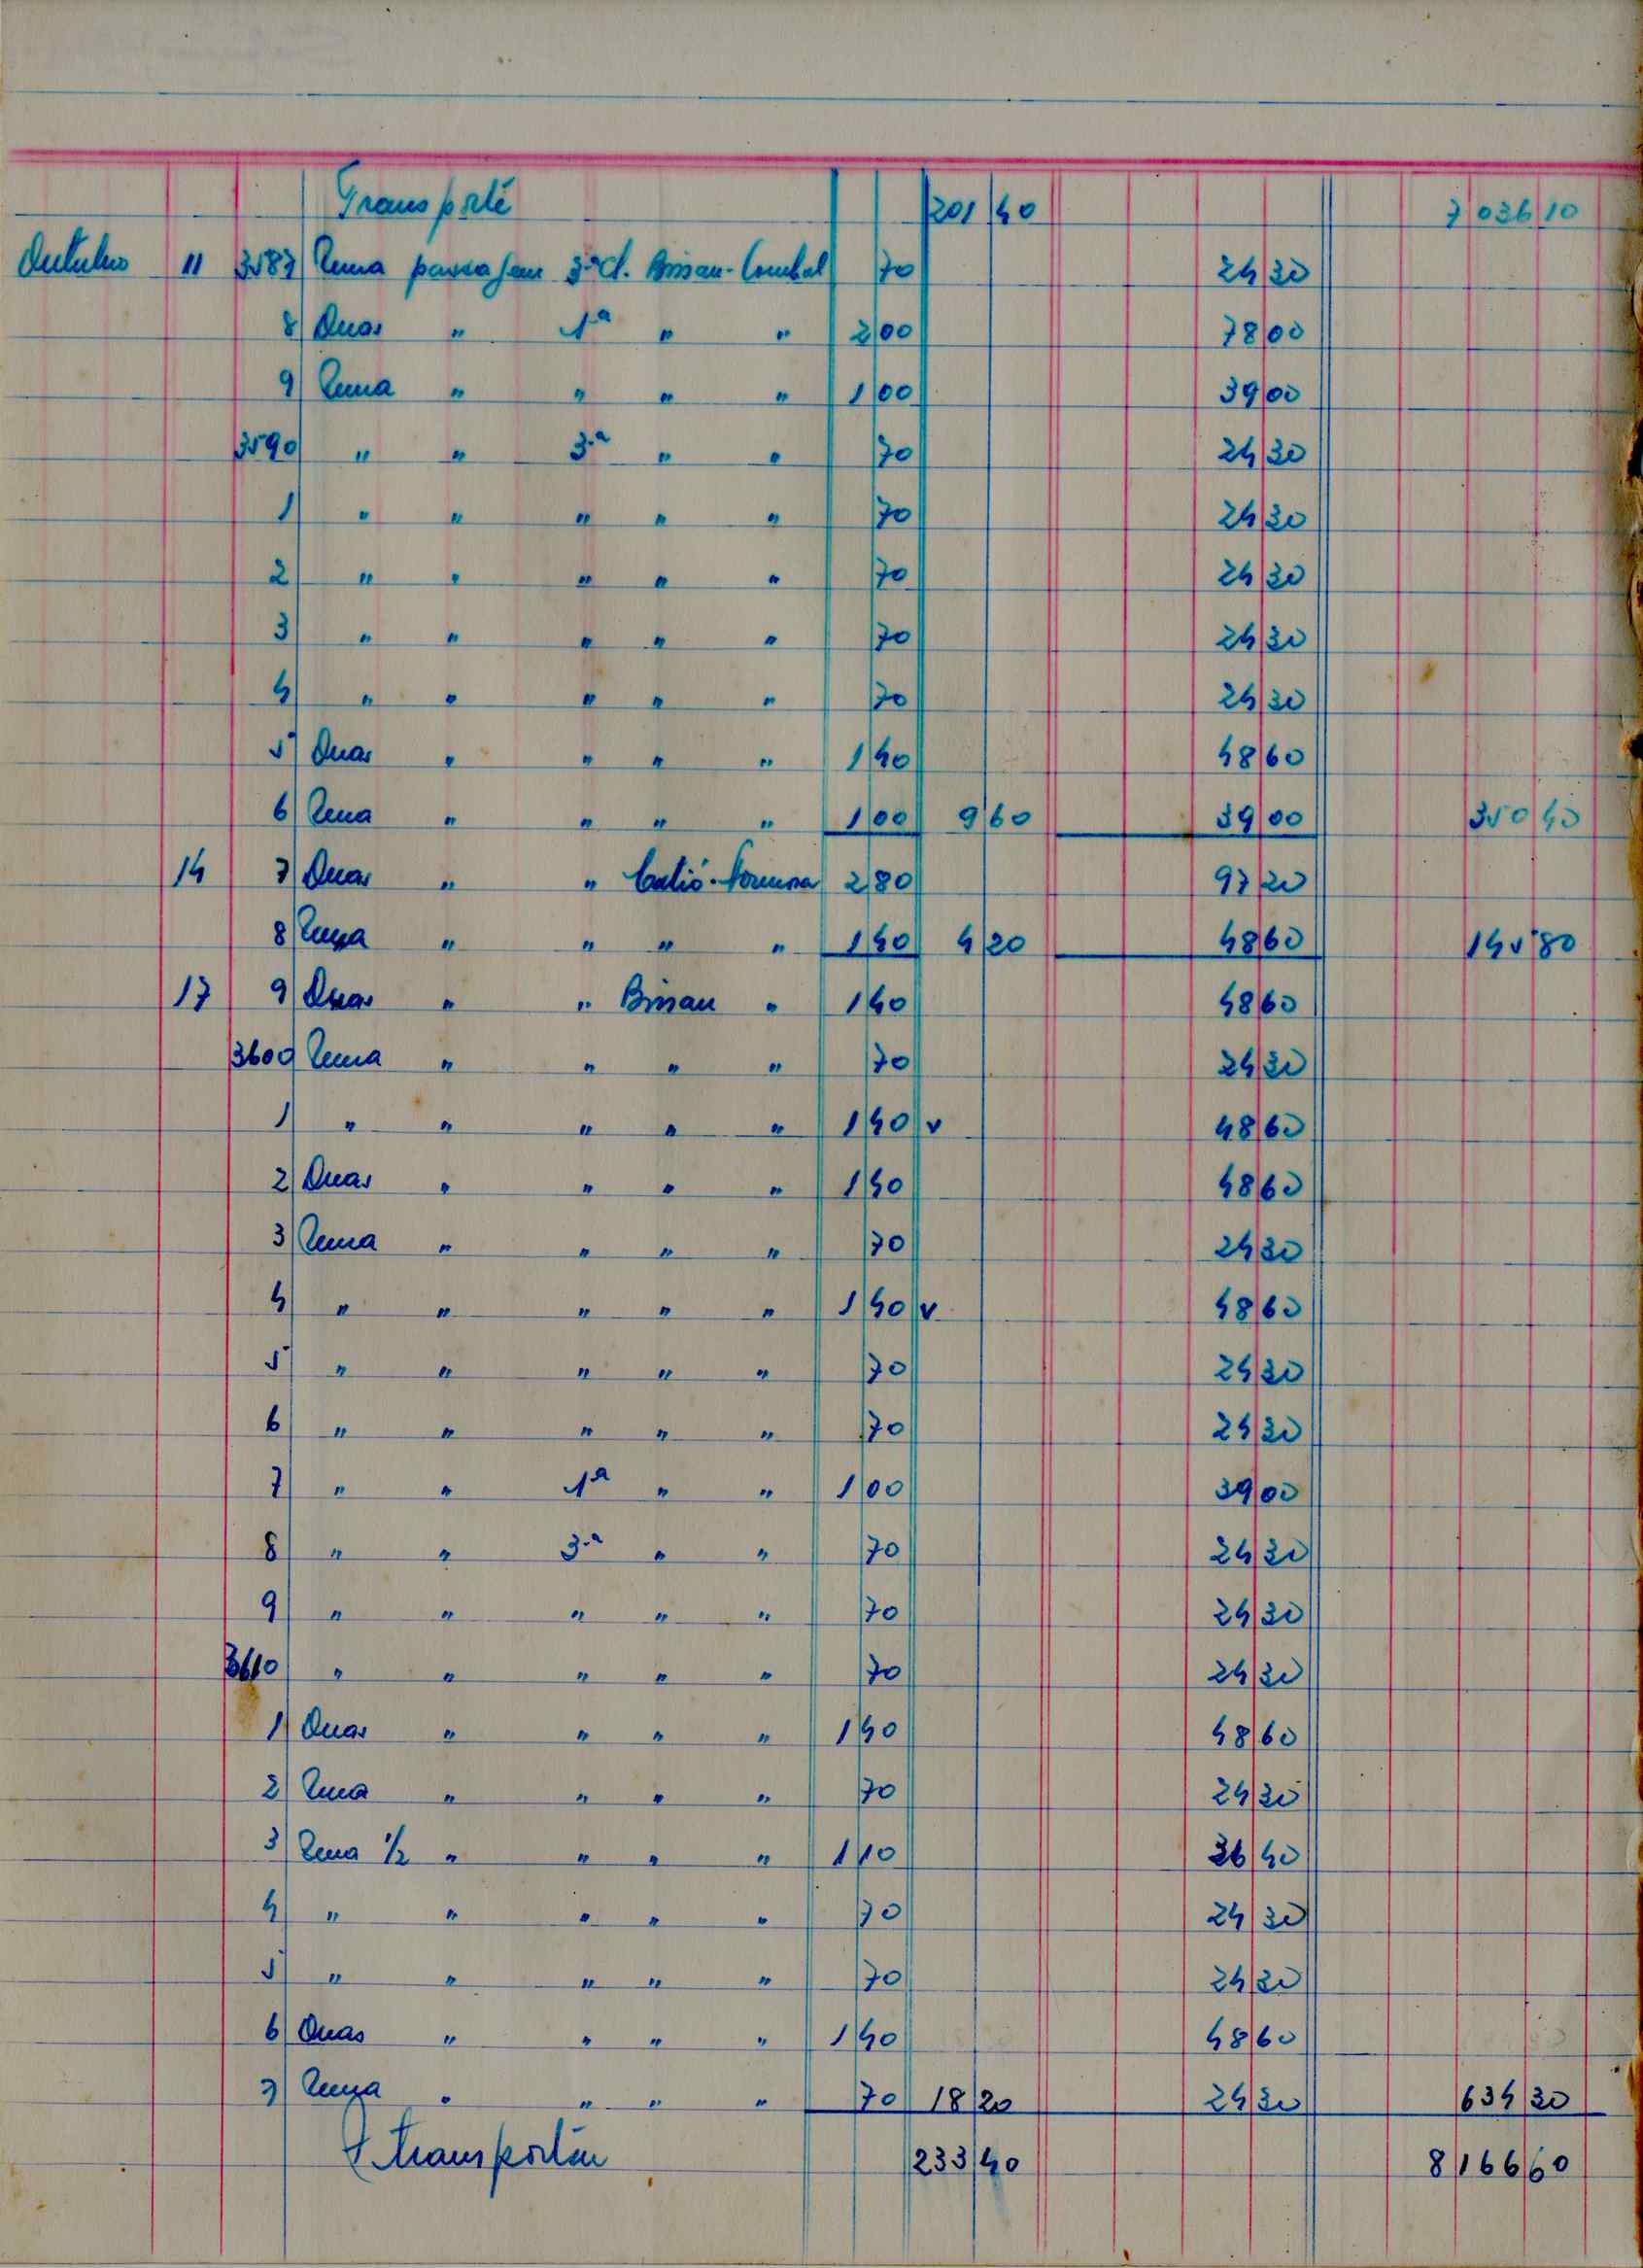 Transporte 201 40 7 036 10
Outubro 11 3587 Uma passagem 3.ª cl. Bissau-Cumbal 70 24 30
8 Duas " 1ª " " 2 00 78 00
9 Uma " " " " 1 00 39 00
3590 " " 3.ª " " 70 24 30
1 " " " " " 70 24 30
2 " " " " " 70 24 30
3 " " " " " 70 24 30
4 " " " " " 70 24 30
5 Duas " " " " 1 40 48 60
6 Uma " " " " 1 00 9 60 39 00 350 40
14 7 Duas " " Catió- 2 80 97 20
8 Uma " " " " 1 40 4 20 48 60 145 80
17 9 Duas " " Bissau " 1 40 48 60
3600 Uma " " " " 70 24 30
1 " " " " " 1 40 v 48 60
2 Duas " " " " 1 40 48 60
3 Uma " " " " 70 24 30
4 " " " " " 1 40 v 48 60
5 " " " " " 70 24 30
6 " " " " " 70 24 30
7 " " 1ª " " 1 00 39 00
8 " " 3.ª " " 70 24 30
9 " " " " " 70 24 30
3610 " " " " " 70 24 30
1 Duas " " " " 1 40 48 60
2 Uma " " " " 70 24 30
3 Uma 1/2 " " " " 1 10 36 40
4 " " " " " 70 24 30
5 " " " " " 70 24 30
6 Duas " " " " 1 40 48 60
7 Uma " " " " 70 18 20 24 30 634 30
A transportar 233 40 8 166 60